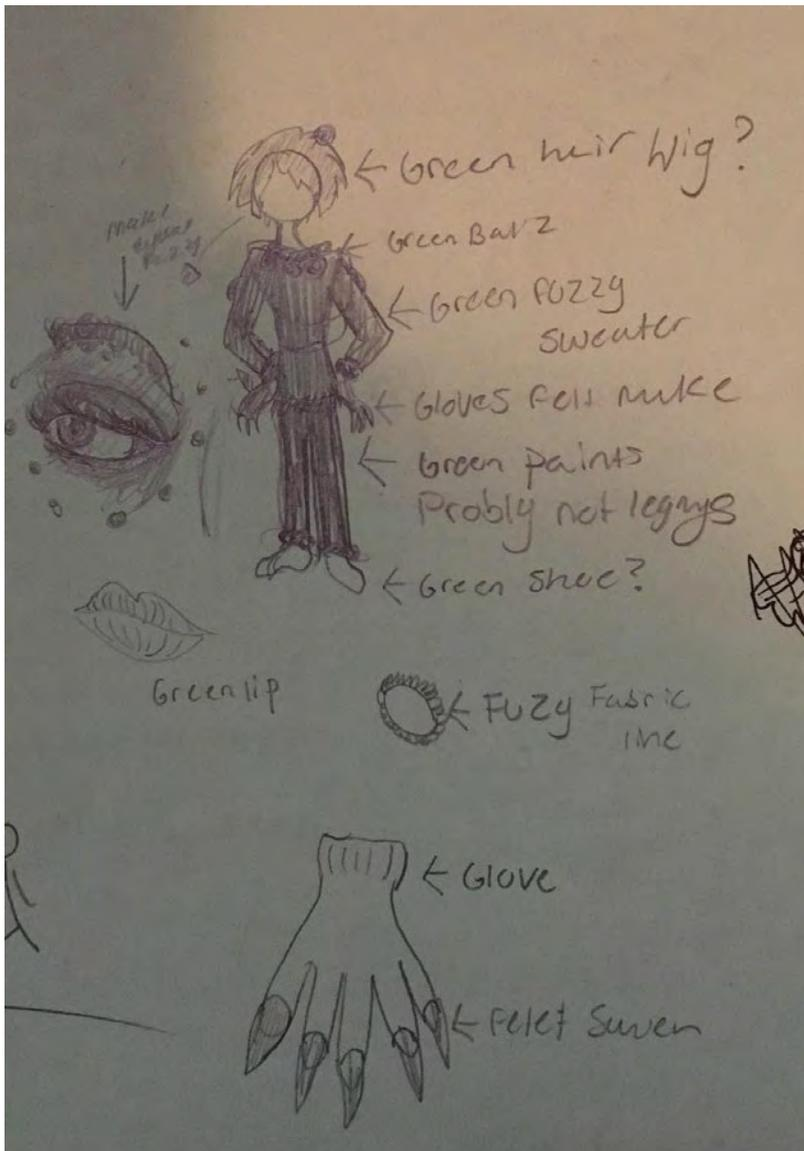 ← Green heir wig?
make
← Green Ballz
← Green FUZZY
sweater
← Gloves Felt make
← Green paints
Probly not legnys
← Green shoe?
Green lip
← FUZY Fabric
line
← Glove
← Felet